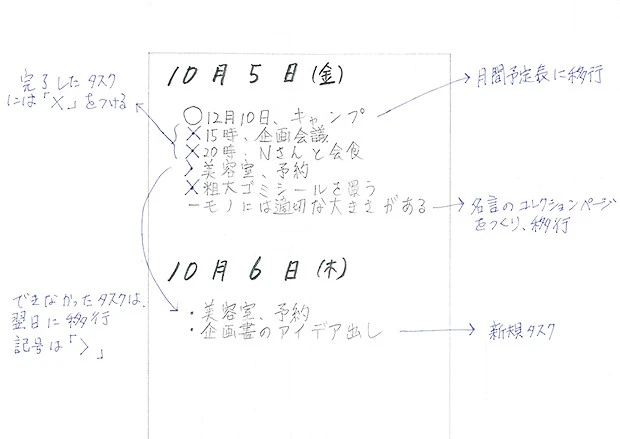 10月5日(金)
○12月10日、キャンプ
×15時、企画会議
×20時、Nさんと会食
>美容室、予約
×粗大ゴミシールを買う
ーモノには適切な大きさがある
10月6日(木)
・美容室、予約
・企画書のアイデア出し
完了したタスク
には「×」をつける
できなかったタスクは、
翌日に移行
記号は「>」
月間予定表に移行
名言のコレクションページ
をつくり、移行
新規タスク